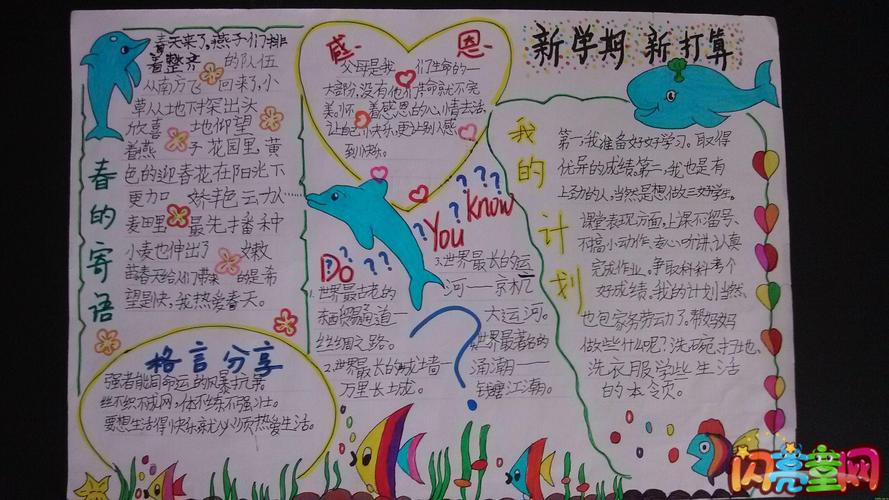 春天来了，燕子们排
着整齐的队伍
从南方飞回来了，小
草从土地下探出头
欣喜地仰望
着燕子花园里，黄
色的迎春花在阳光下
更加娇艳
麦田里最先播种
小麦也伸出了嫩
苗春天给们带来的是希
望是快，我热爱春天。
春的寄语
格言分享
强者能同命运的风暴抗
丝不织不成网，体不练不强壮。
要想生活得快乐就必须热爱生活。
感恩
父母是我们生命的一
大部分，没有他们生命就不完
美，着感恩的心情去活，
让自己快乐更让别人感
到快乐。
Do You Know
1.世界最古老的
东西贸易通道—
丝绸之路。
2.世界最长的城墙—
万里长城。
3.世界最长的运
河——京杭
大运河。
世界最著名的
涌潮—
钱塘江潮。
新学期 新打算
我的计划
第一，我准备好好学习。取得
优异的成绩第二，我也是有
上劲的人，当然是想做三好学生。
课堂表现方面，上课不留号、
不搞小动作，专心听讲，认真
完成作业，争取科科考个
好成绩，我的计划当然
也包家务劳动了。帮妈妈
做些什么呢？洗碗，扫地、
洗衣服学些生活
的本领。
闪亮童网